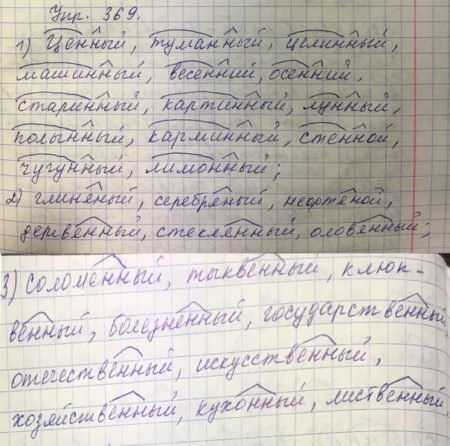 Упр. 369.
1) Ценный, туманный, целинный,
машинный, весенний, осенний,
старинный, картинный, лунный,
полынный, карминный, стенной,
чугунный, лимонный;
2) глиняный, серебряный, нефтяной,
дервянный, стеклянный, оловянный;
3) соломенный, тыквенный, клюк-
венный, болезненный, государственный,
отечественный, искусственный,
хозяйственный, кухонный, лиственный.